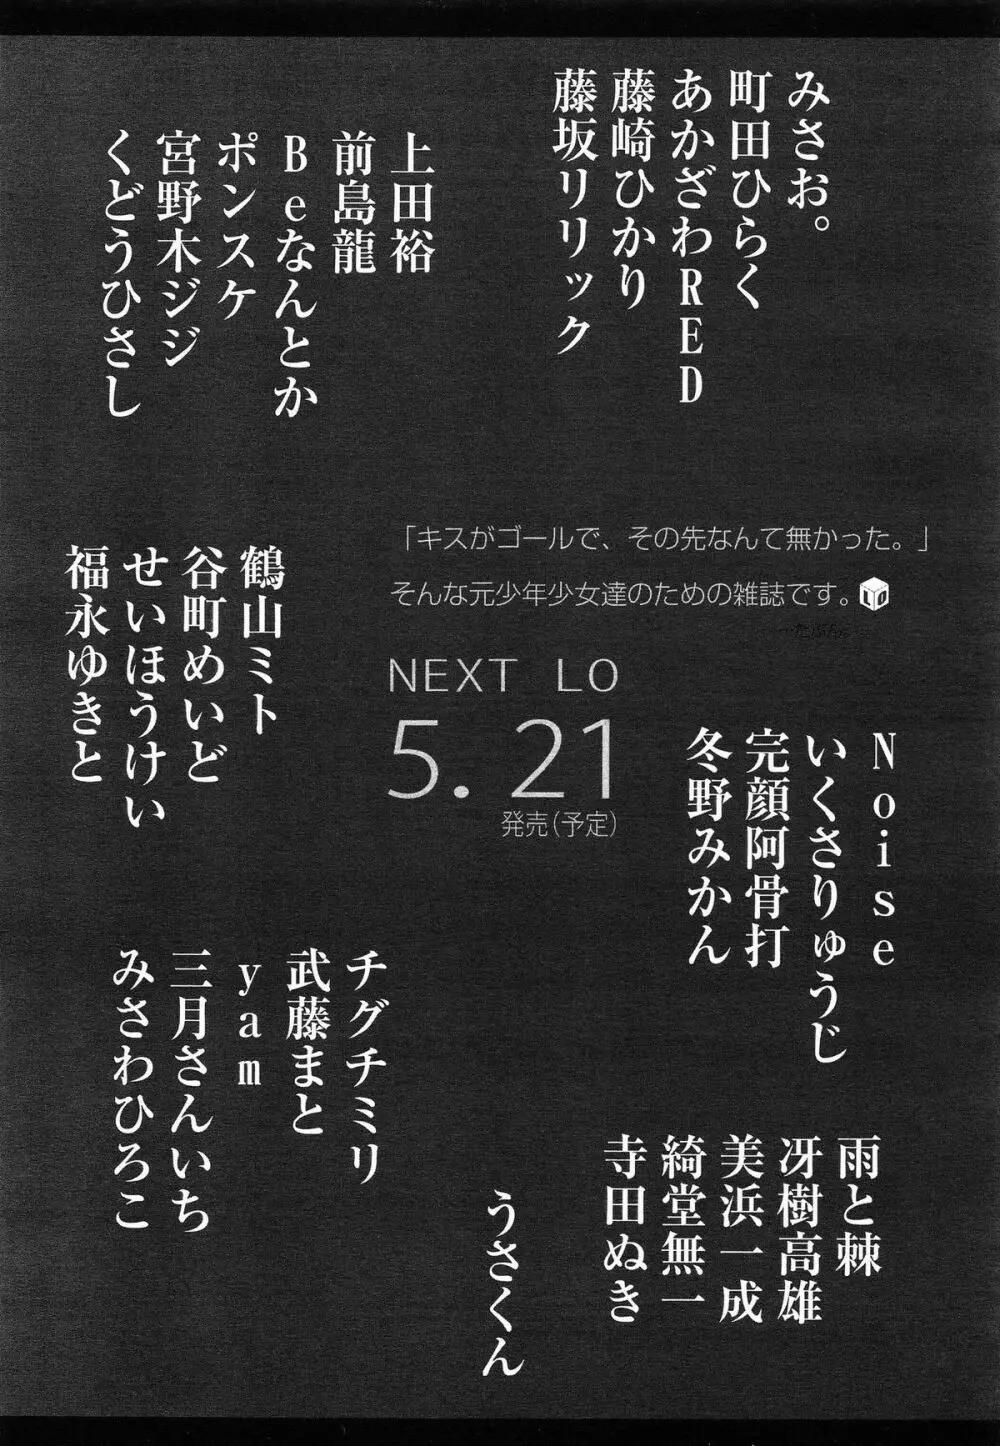 みさお。
町田ひらく
あかざわRED
藤崎ひかり
藤坂リリック
上田裕
前島龍
Beなんとか
ポンスケ
宮野木ジジ
くどうひさし
「キスがゴールで、その先なんて無かった。」
そんな元少年少女達のための雑誌です。LO
…たぶん。
NEXT LO
5. 21
発売(予定)
鶴山ミト
谷町めいど
せいほうけい
福永ゆきと
Noise
いくさりゅうじ
完顔阿骨打
冬野みかん
チグチミリ
武藤まと
yam
三月さんいち
みさわひろこ
雨と棘
冴樹高雄
美浜一成
綺堂無一
寺田ぬき
うさくん